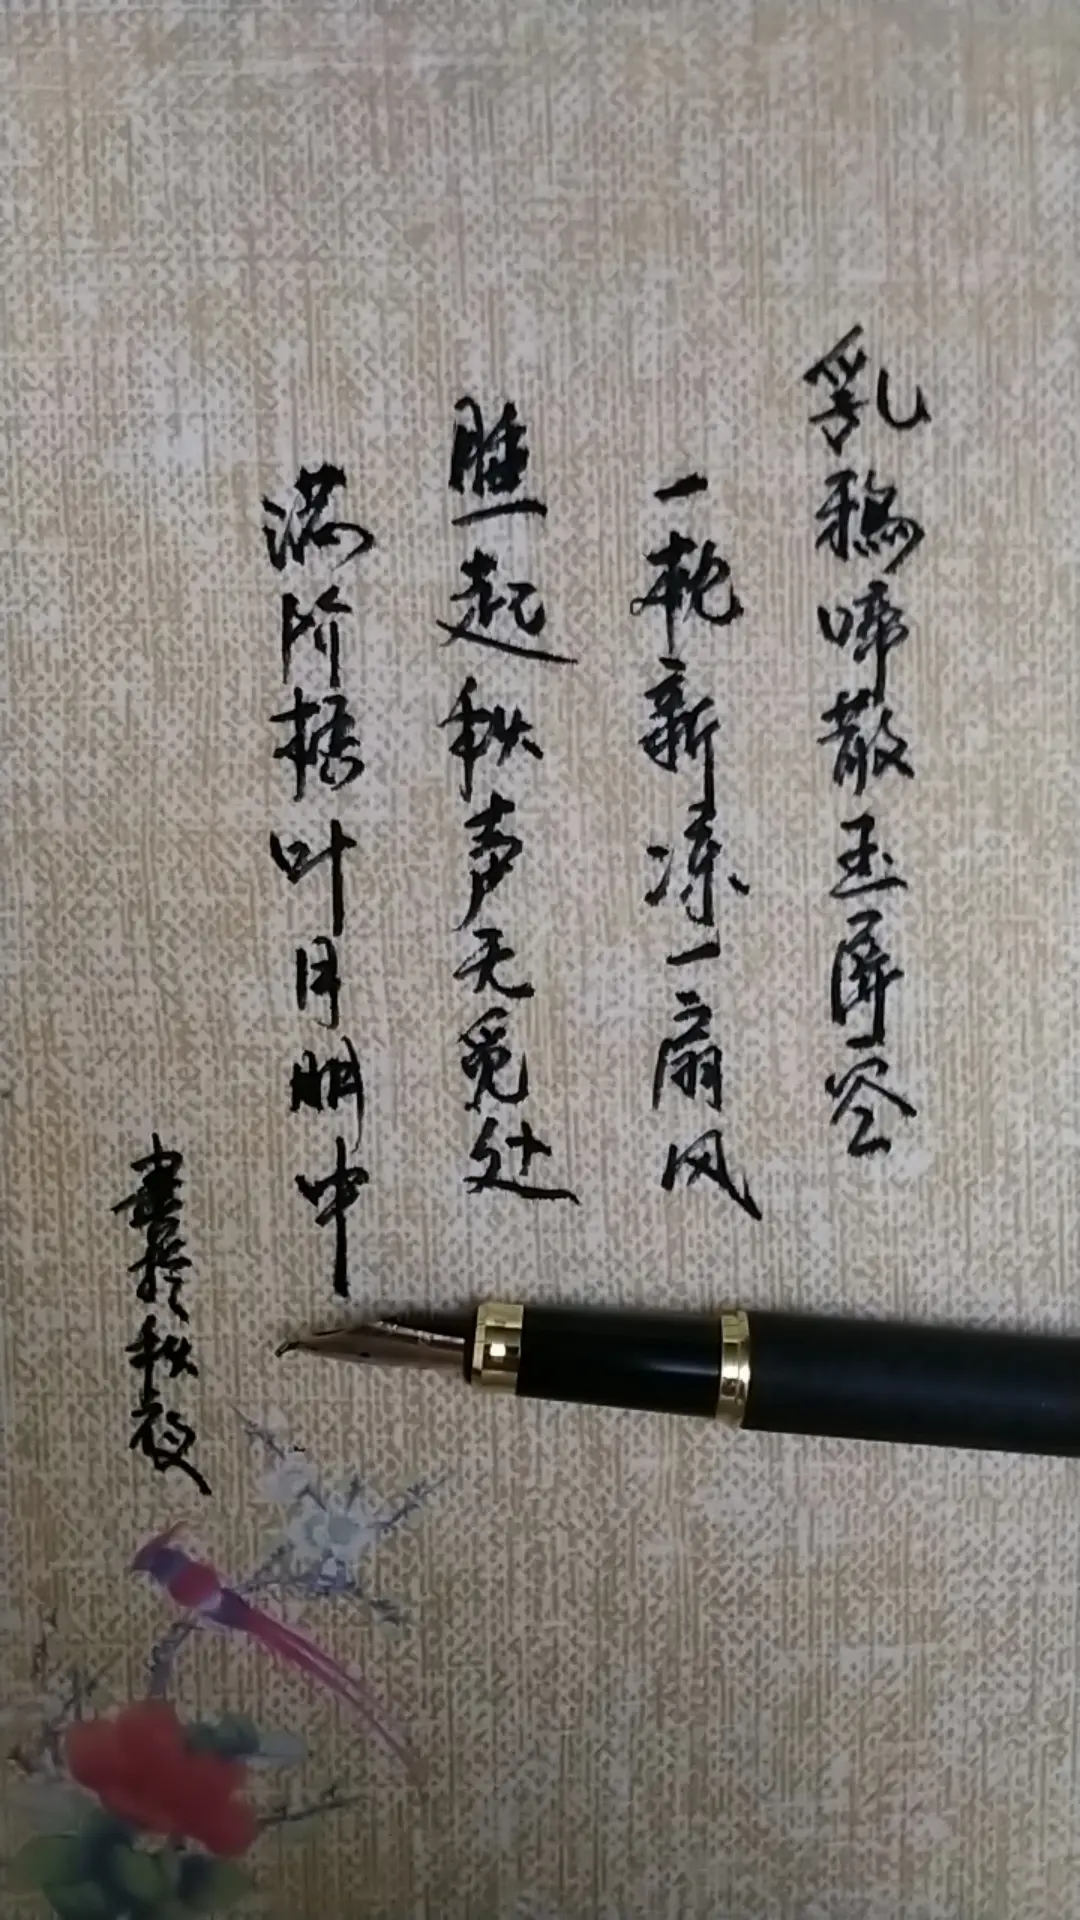 乳鸦啼散玉屏空
一枕新凉一扇风
睡起秋声无觅处
满阶梧叶月明中
書於秋夜